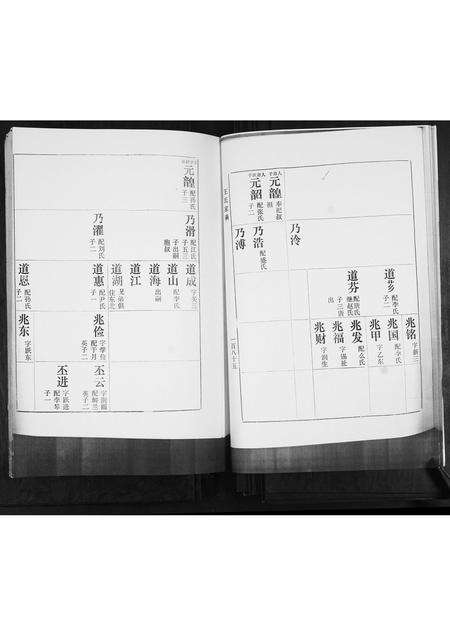 元鍠
奉祀叔
祖
元韶
配張氏
子二
乃泠
乃浩
配盛氏
乃溥
道芗
配李氏
子二
道芬
配唐氏
继赵氏
子三唐
出
兆铭
字新三
兆国
配李氏
兆甲
字乙东
兆发
配么氏
兆福
字锡祉
兆财
字润生
王氏家乘
一百八十五
元鍠
配孙氏
子三
乃滑
配江氏
子五三
子出嗣
胞叔
乃濯
配刘氏
子二
道成
字美三
道山
配李氏
道海
出嗣
道江
道湖
兄弟俱
住东北
道惠
配尹氏
子一
道恩
配孙氏
子二
兆俭
配于月
英子二
兆东
字跃东
丕云
字润雨
配解兰
英子二
丕进
字跃进
配李琴
子一